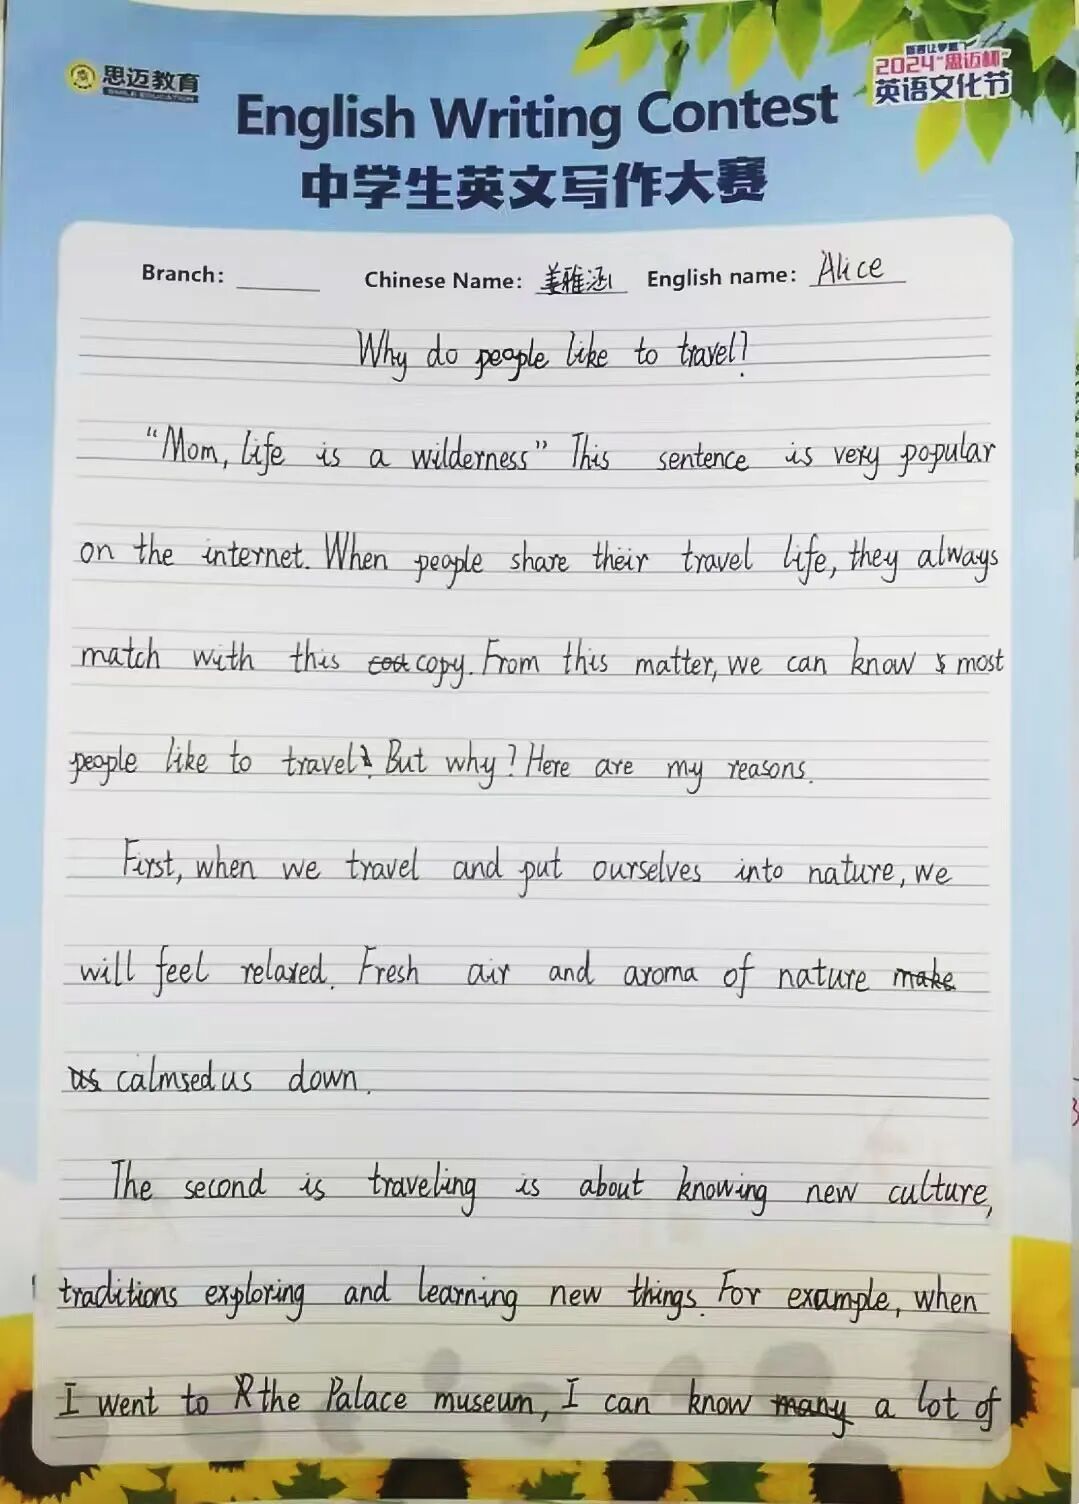 思迈教育
SMILE EDUCATION
2024"思迈杯"
英语文化节
English Writing Contest
中学生英文写作大赛
Branch: Chinese Name: 姜雅涵 English name: Alice
Why do people like to travel?
"Mom, life is a wilderness" This sentence is very popular
on the internet. When people share their travel life, they always
match with this copy. From this matter, we can know most
people like to travel. But why? Here are my reasons.
First, when we travel and put ourselves into nature, we
will feel relaxed. Fresh air and aroma of nature make
us calmsed us down.
The second is traveling is about knowing new culture,
traditions exploring and learning new things. For example, when
I went to the Palace museum, I can know many a lot of